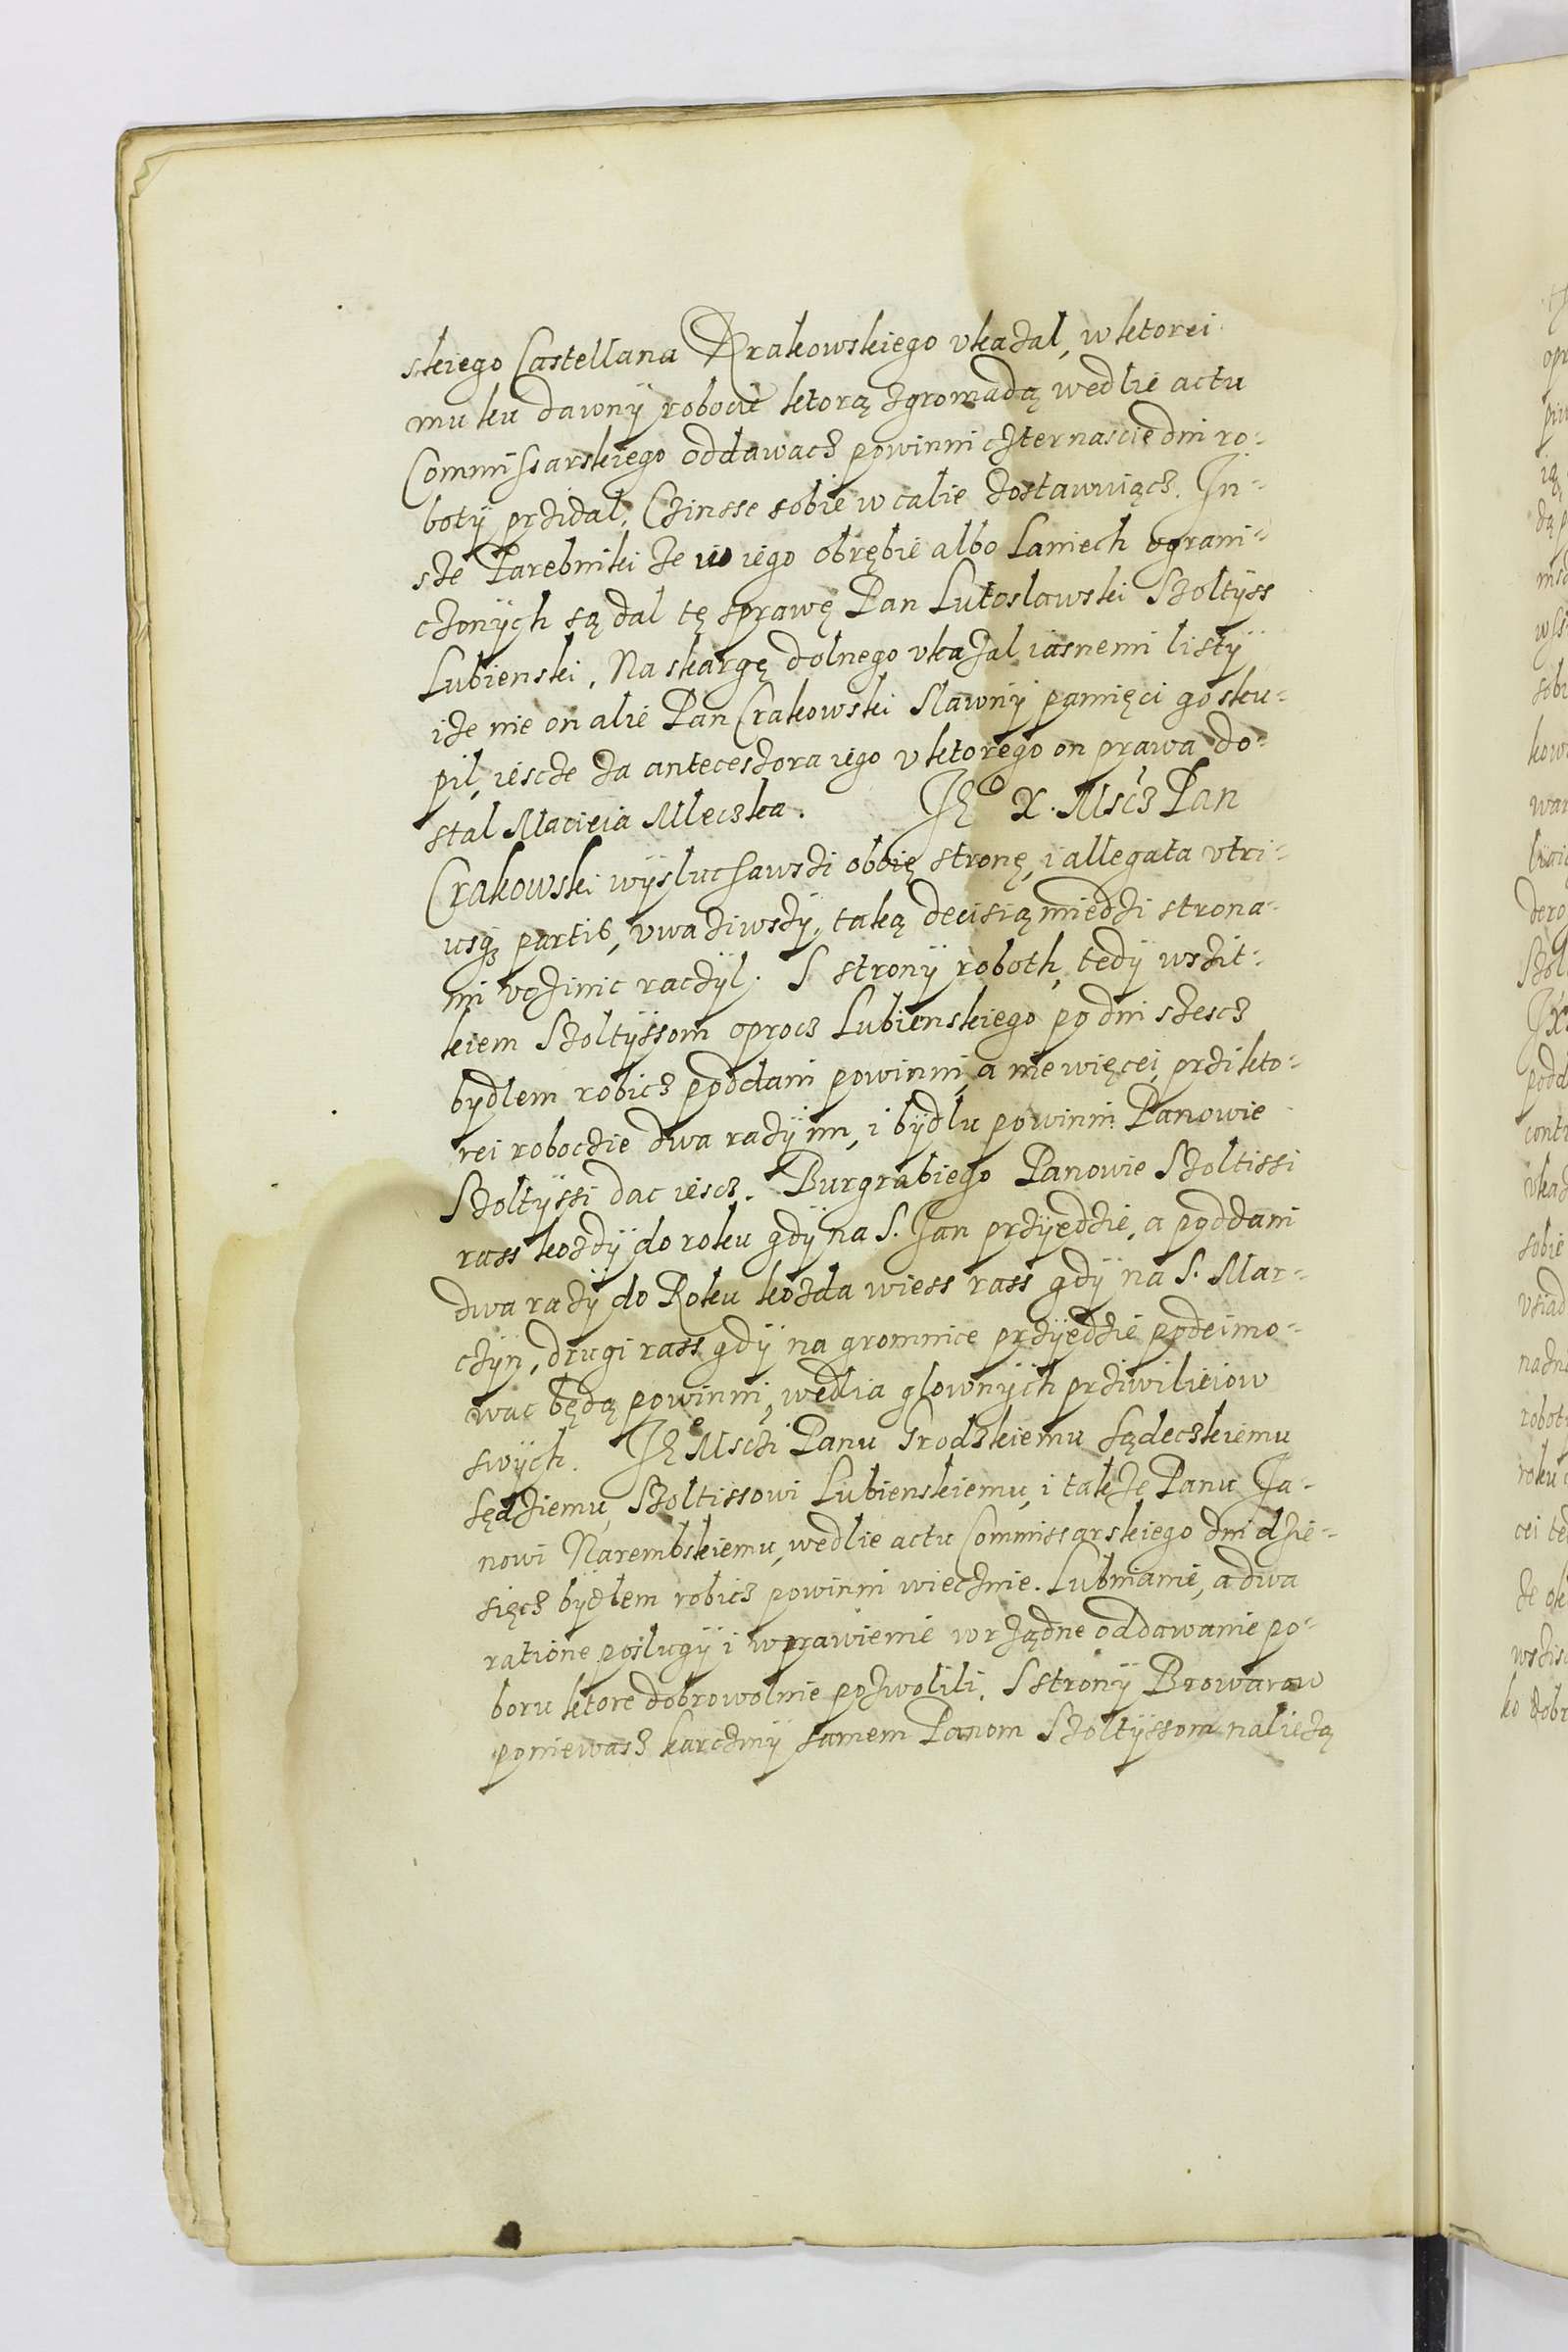 skiego Castellana Krakowskiego vkazal, w ktorei
mu ku dawny robocie ktorą zgromadą wedlie actu
Commissarskiego oddawacz powinni czternascie dni ro=
boty przidal, Czinsse sobie w calie zostawuiącz. In=
sze Zarebniki ze w iego obrębie albo Laniech ograni=
czonych są dal tę sprawę Pan Lutoslawski Szoltyss
Lubienski, Na skargę dolnego vkazal iasnemi listy
ize nie on alie Pan Crakowski Slawny pamięci go sku=
pil, iescze za antecessora iego v ktorego on prawa do=
stal Macieia Mleczka. Je° X. Mscz Pan
Crakowski wyslucsawszi obbię stronę, i allegata vtri=
usq3 partis, vwaziwszy, taką decisią miedzi strona=
mi vczinic raczyl. S strony roboth, tedy wszit=
kiem Szoltyssom oprocz Lubienskiego po dni szescz
bydlem robicz poddani powinni, a nie więcei, przi kto=
rei roboczie dwa razy im, i bydlu powinni Panowie
Szoltyssi dac iescz. Burgrabiego Panowie Szoltissi
rass kozdy do roku gdy na S. Jan przyiedzie, a poddani
dwa razy do Roku kozda wiess rass gdy na S. Mar=
czyn, drugi rass gdy na gromnice przyiedzie podeimo=
wac będą powinni, wedlia glownych prziwilieiow
swych. Je° Msczi Panu Grodzkiemu Sądeczkiemu
Sędziemu, Szoltissowi Lubienskiemu, i takze Panu Ja=
nowi Narembskiemu, wedlie actu Commissarskiego dni dzie=
sięcz bydlem robicz powinni wiecznie. Lubnianie, a dwa
ratione poslugy i wprawienie w rządne oddawanie po=
boru ktore dobrowolnie pozwolili. S strony Browarow
poniewasz karczmy samem Panom Szoltyssom nalieżą